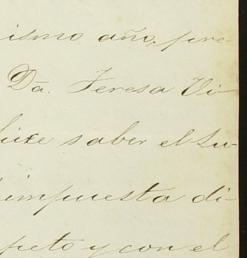 ismo año, pre-
Dª. Teresa Vi-
hice saber el Su-
impuesta di-
peto y con el